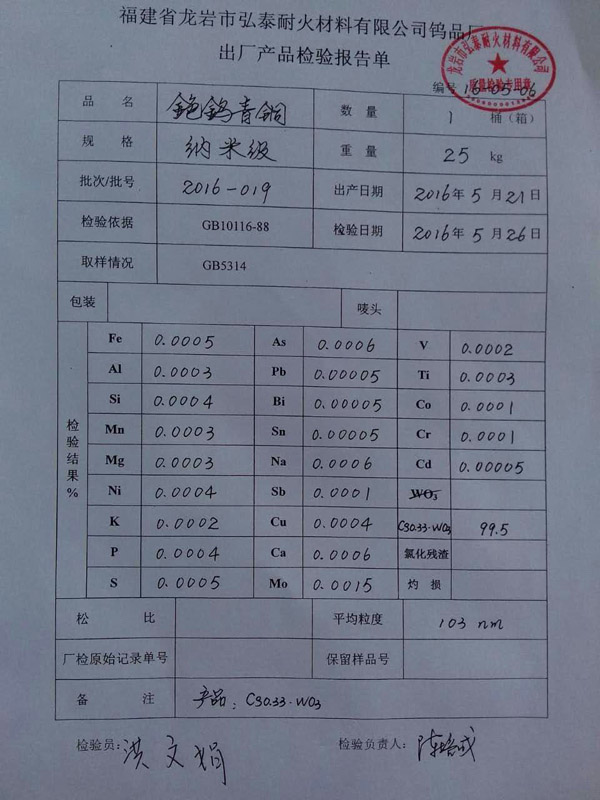 福建省龙岩市弘泰耐火材料有限公司钨品厂
出厂产品检验报告单
龙岩市弘泰耐火材料有限公司
质量检验专用章
编号 16-05-06
品 名 铯钨青铜 数 量 1 桶（箱）
规 格 纳米级 重 量 25 kg
批次/批号 2016-019 出产日期 2016年5月21日
检验依据 GB10116-88 检验日期 2016年5月26日
取样情况 GB5314
包装 唛头
检验结果%
Fe 0.0005 As 0.0006 V 0.0002
Al 0.0003 Pb 0.00005 Ti 0.0003
Si 0.0004 Bi 0.00005 Co 0.0001
Mn 0.0003 Sn 0.00005 Cr 0.0001
Mg 0.0003 Na 0.0006 Cd 0.00005
Ni 0.0004 Sb 0.0001 WO₃
K 0.0002 Cu 0.0004 Cs0.33·WO₃ 99.5
P 0.0004 Ca 0.0006 氯化残渣
S 0.0005 Mo 0.0015 灼 损
松 比 平均粒度 103 nm
厂检原始记录单号 保留样品号
备 注 产品：Cs0.33·WO₃
检验员：洪文娟 检验负责人：陈